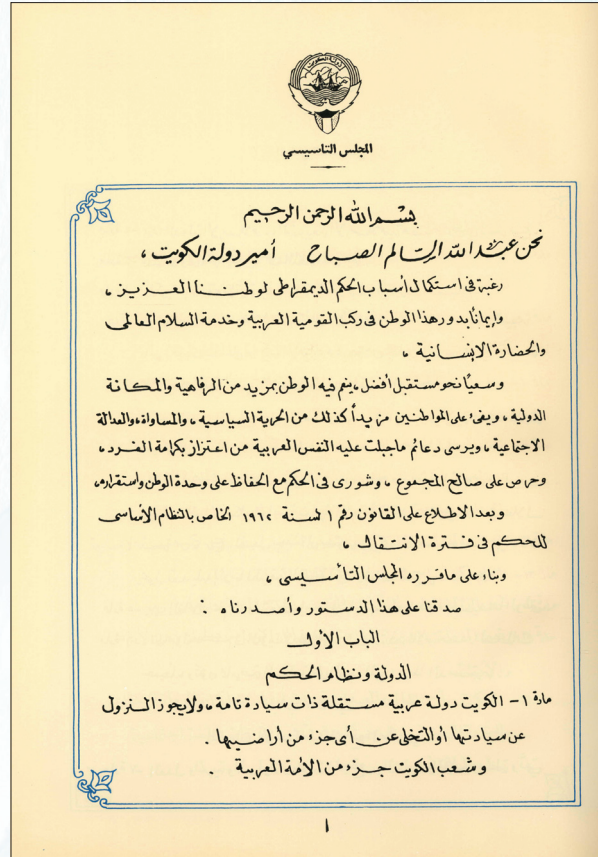 دولة الكويت
المجلس التاسيسي
بسم الله الرحمن الرحيم
نحن عبد الله السالم الصباح أمير دولة الكويت ،
رغبة في استكمال أسباب الحكم الديمقراطى لوطننا العزيز ،
وإيمانًا بدور هذا الوطن في ركب القومية العربية وخدمة السلام العالمى
والحضارة الإنسانية ،
وسعيًا نحو مستقبل أفضل ، ينعم فيه الوطن بمزيد من الرفاهية والمكانة
الدولية ، ويفئ على المواطنين مزيدًا كذلك من الحرية السياسية ، والمساواة ، والعدالة
الاجتماعية ، ويرسى دعائم ما جبلت عليه النفس العربية من اعتزاز بكرامة الفرد ،
وحرص على صالح المجموع ، وشورى في الحكم مع الحفاظ على وحدة الوطن واستقراره ،
وبعد الاطلاع على القانون رقم ١ لسنة ١٩٦٢ الخاص بالنظام الأساسى
للحكم في فترة الانتقال ،
وبناء على ما قرره المجلس التأسيسى ،
صدقنا على هذا الدستور وأصدرناه :
الباب الأول
الدولة ونظام الحكم
مادة ١- الكويت دولة عربية مستقلة ذات سيادة تامة ، ولا يجوز النزول
عن سيادتها أو التخلى عن أى جزء من أراضيها .
وشعب الكويت جزء من الأمة العربية .
١